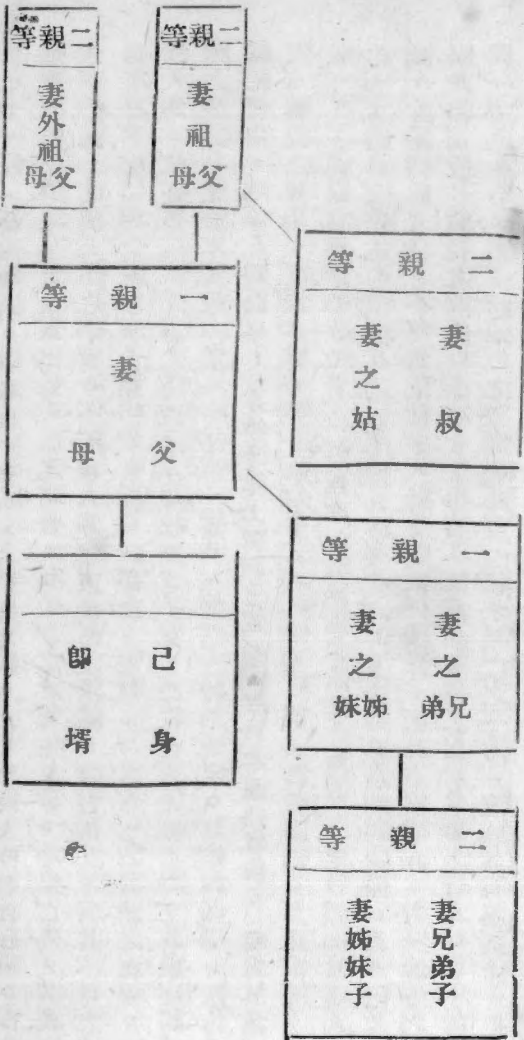 二親等
妻祖父母
二親等
妻外祖父母
二親等
妻叔
妻之姑
一親等
妻
父
母
一親等
妻之兄弟
妻之姊妹
己身
卽壻
二親等
妻兄弟子
妻姊妹子